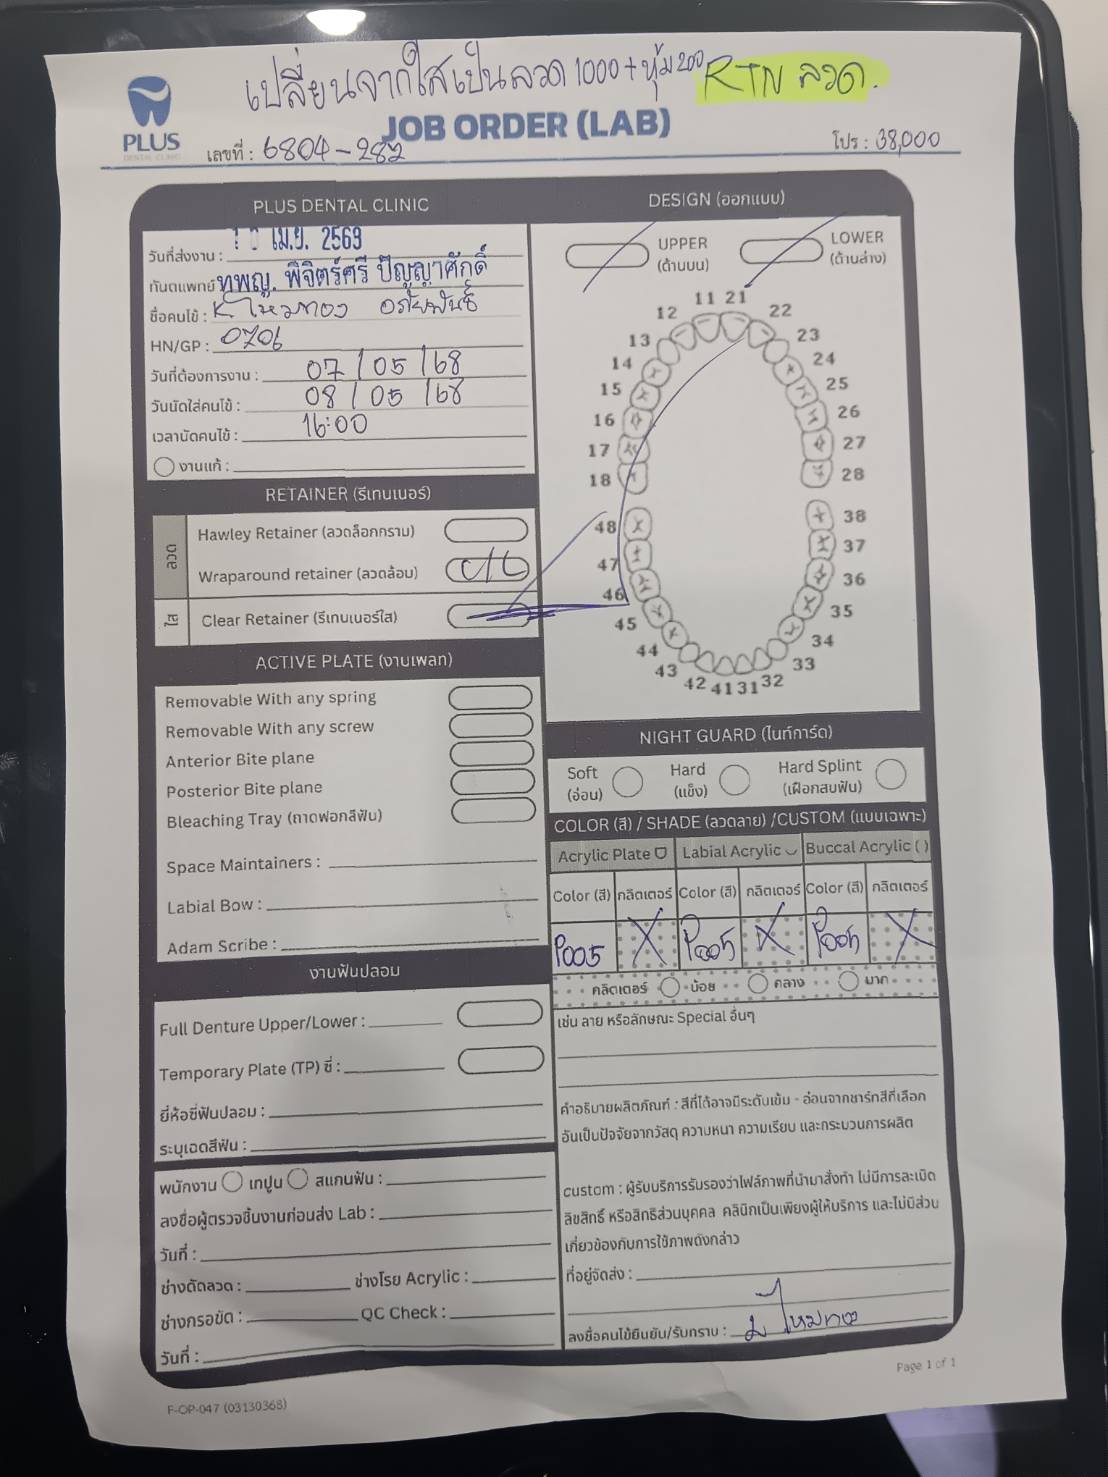 เปลี่ยนจากใสเป็นลวด 1000 + หุ้ม 200 RTN ลวด.
PLUS
DENTAL CLINIC
JOB ORDER (LAB)
เลขที่ : 6804-282
โปร : 38,000
PLUS DENTAL CLINIC
วันที่ส่งงาน : เม.ย. 2569
ทันตแพทย์ ทพญ. พิจิตร์ศรี ปัญญาศักดิ์
ชื่อคนไข้ : K. ไหมทอง
HN/GP : 0706
วันที่ต้องการงาน : 07/05/68
วันนัดใส่คนไข้ : 08/05/68
เวลานัดคนไข้ : 16:00
งานแก้ :
RETAINER (รีเทนเนอร์)
ลวด
Hawley Retainer (ลวดล็อกกราม)
Wraparound retainer (ลวดล้อม) U/L
ใส
Clear Retainer (รีเทนเนอร์ใส)
ACTIVE PLATE (งานเพลท)
Removable With any spring
Removable With any screw
Anterior Bite plane
Posterior Bite plane
Bleaching Tray (ถาดฟอกสีฟัน)
Space Maintainers :
Labial Bow :
Adam Scribe :
งานฟันปลอม
Full Denture Upper/Lower :
Temporary Plate (TP) ซี่ :
ยี่ห้อซี่ฟันปลอม :
ระบุเฉดสีฟัน :
พนักงาน เทปูน สแกนฟัน :
ลงชื่อผู้ตรวจชิ้นงานก่อนส่ง Lab :
วันที่ :
ช่างดัดลวด : ช่างโรย Acrylic :
ช่างกรอขัด : QC Check :
วันที่ :
F-OP-047 (03130368)
DESIGN (ออกแบบ)
UPPER
(ด้านบน)
LOWER
(ด้านล่าง)
11 21
12 22
13 23
14 24
15 25
16 26
17 27
18 28
48 38
47 37
46 36
45 35
44 34
43 33
42 41 31 32
NIGHT GUARD (ไนท์การ์ด)
Soft
(อ่อน)
Hard
(แข็ง)
Hard Splint
(เฝือกสบฟัน)
COLOR (สี) / SHADE (ลวดลาย) /CUSTOM (แบบเฉพาะ)
Acrylic Plate Labial Acrylic Buccal Acrylic ( )
Color (สี) กลิตเตอร์ Color (สี) กลิตเตอร์ Color (สี) กลิตเตอร์
P005 X P005 X P005 X
กลิตเตอร์ น้อย กลาง มาก
เช่น ลาย หรือลักษณะ Special อื่นๆ
คำอธิบายผลิตภัณฑ์ : สีที่ได้อาจมีระดับเข้ม - อ่อนจากชาร์ทสีที่เลือก
อันเป็นปัจจัยจากวัสดุ ความหนา ความเรียบ และกระบวนการผลิต
custom : ผู้รับบริการรับรองว่าไฟล์ภาพที่นำมาสั่งทำ ไม่มีการละเมิด
ลิขสิทธิ์ หรือสิทธิส่วนบุคคล คลินิกเป็นเพียงผู้ให้บริการ และไม่มีส่วน
เกี่ยวข้องกับการใช้ภาพดังกล่าว
ที่อยู่จัดส่ง :
ลงชื่อคนไข้ยืนยัน/รับทราบ : ไหมทอง
Page 1 of 1